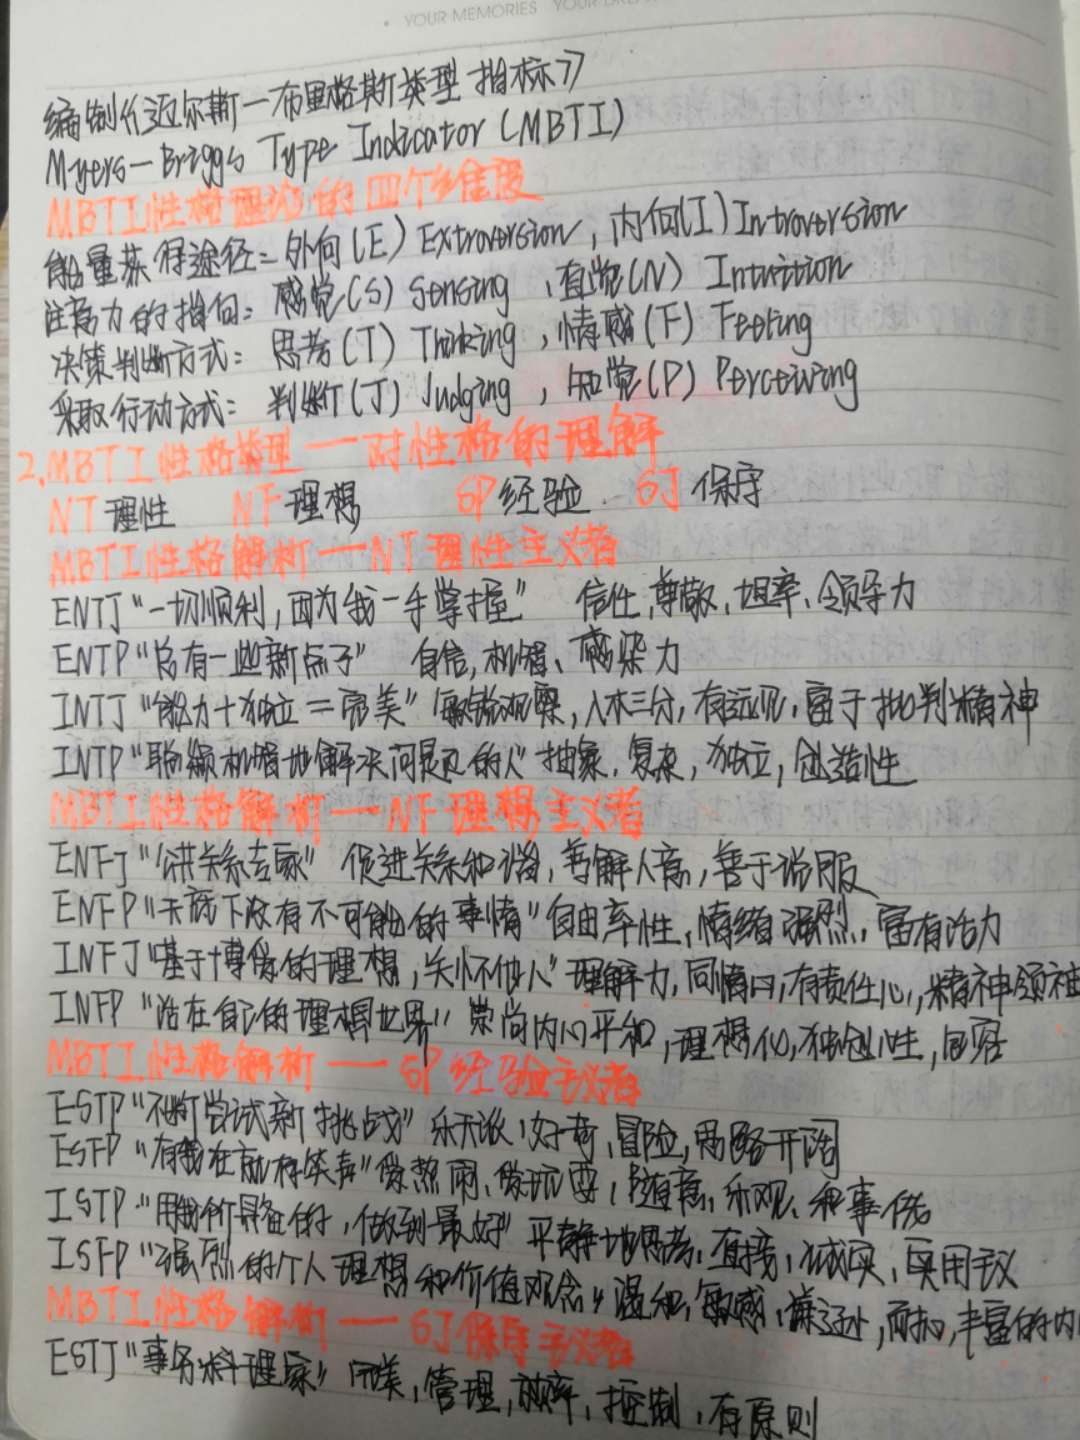 YOUR MEMORIES YOUR
编制《迈尔斯—布里格斯类型指标》
Myers—Briggs Type Indicator (MBTI)
MBTI性格理论的四个维度
能量获得途径：外向(E) Extroversion，内向(I) Introversion
注意力的指向：感觉(S) Sensing、直觉(N) Intuition
决策判断方式：思考(T) Thinking，情感(F) Feeling
采取行动方式：判断(J) Judging，知觉(P) Perceiving
2.MBTI性格类型——对性格的理解
NT理性 NF理想 SP经验 SJ保守
MBTI性格解析——NT理性主义者
ENTJ“一切顺利，因为我一手掌握” 信任，尊敬，坦率、领导力
ENTP“总有一些新点子” 自信，机智、感染力
INTJ“能力+独立=完美” 敏锐观察，入木三分，有远见，富于批判精神
INTP“聪颖机智地解决问题的人” 抽象，复杂，独立，创造性
MBTI性格解析——NF理想主义者
ENFJ“公共关系专家” 促进关系和谐，善解人意，善于说服
ENFP“天底下没有不可能的事情” 自由率性，情绪强烈，富有活力
INFJ“基于博爱的理想，关怀他人” 理解力，同情心，有责任心，精神领袖
INFP“活在自己的理想世界” 崇尚内心平和，理想化，独创性，包容
MBTI性格解析——SP经验主义者
ESTP“不断尝试新挑战” 乐天派，好奇，冒险，思路开阔
ESFP“有我在就有笑声” 爱热闹、爱玩耍，随意，乐观、和事佬
ISTP“用我所具备的，做到最好” 平静地思考，直接，诚实，实用主义
ISFP“强烈的个人理想和价值观念” 温和，敏感，谦逊，耐心，丰富的内
MBTI性格解析——SJ保守主义者
ESTJ“事务料理家” 完美，管理，效率，控制，有原则